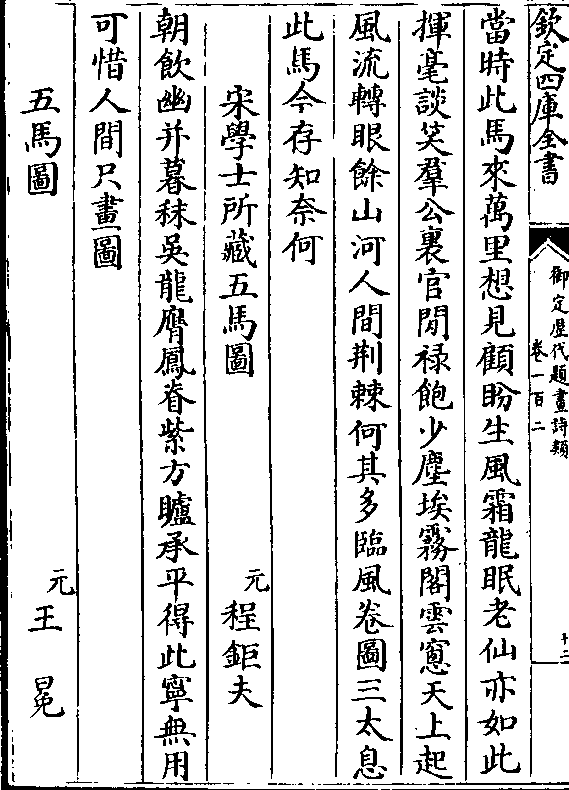 欽定四庫全書
御定歷代題畫詩類
卷一百二
十二
當時此馬來萬里想見顧盼生風霜龍眠老仙亦如此
揮毫談笑羣公裏官閒祿飽少塵埃霧閣雲窻天上起
風流轉眼餘山河人間荆棘何其多臨風卷圖三太息
此馬今存知奈何
宋學士所藏五馬圖
元 程鉅夫
朝飲幽并暮秣吳龍膺鳳脊紫方矑承平得此寧無用
可惜人間只畫圖
五馬圖
元 王冕